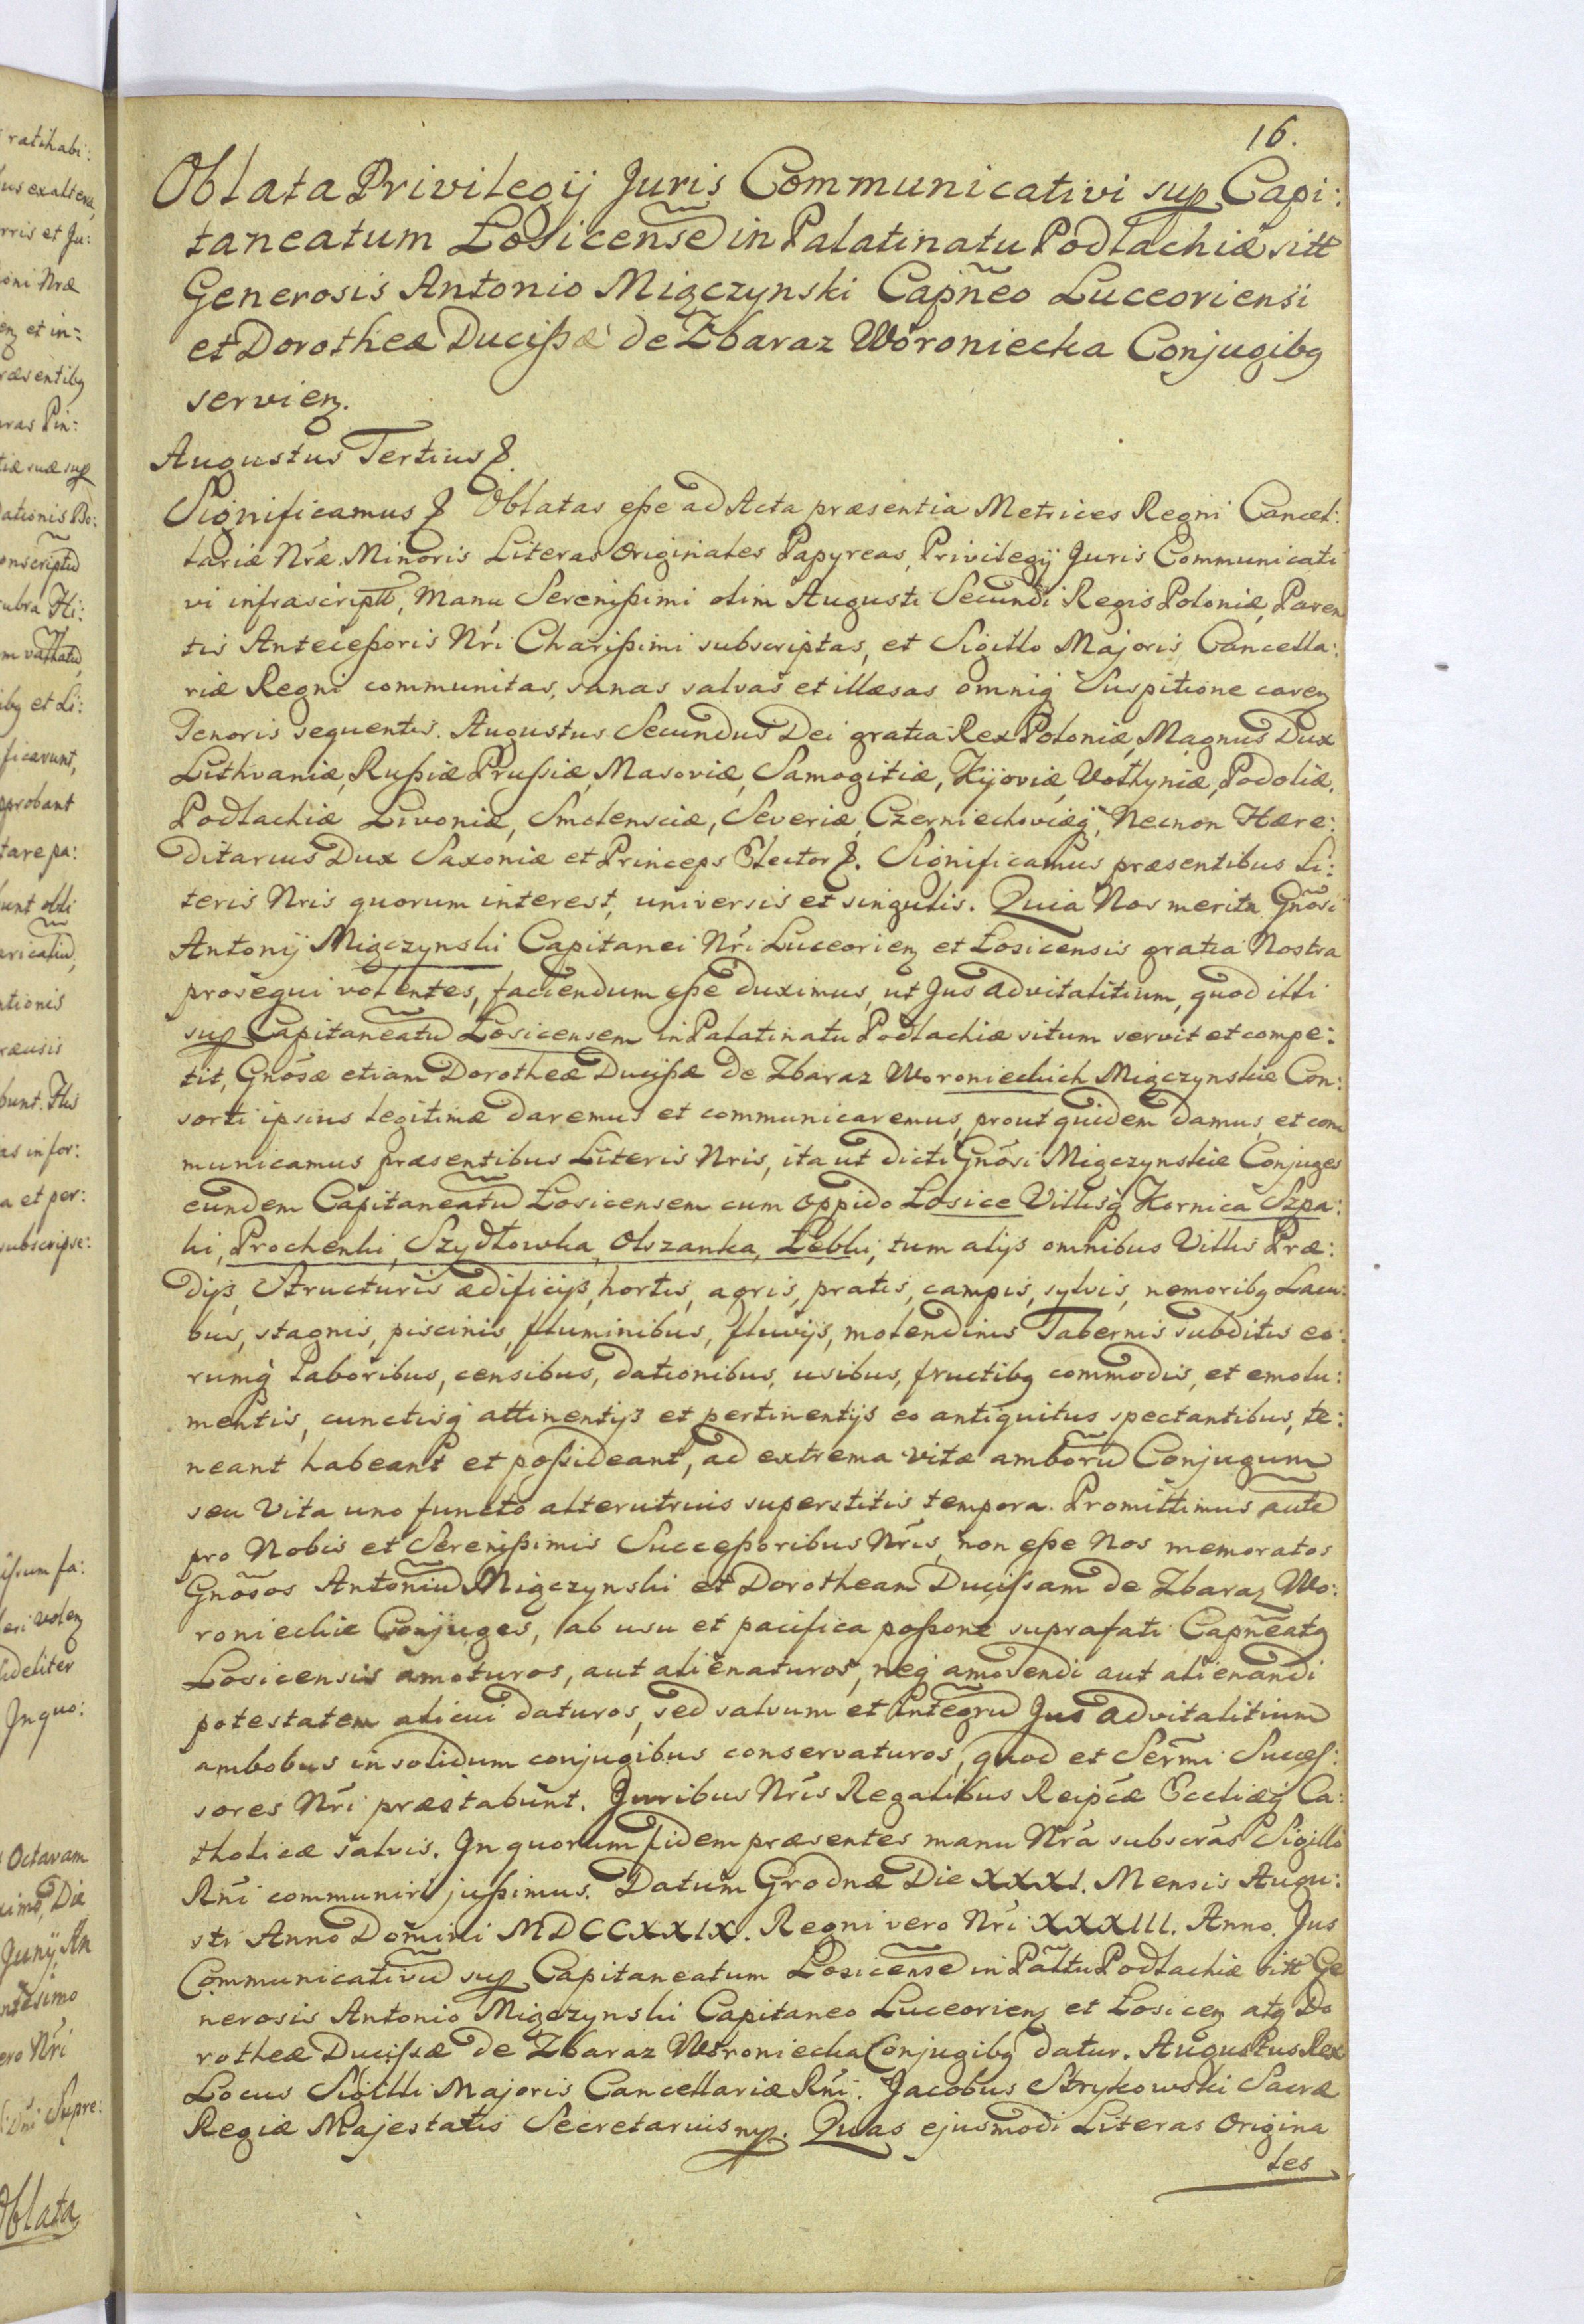 16.
Oblata Privilegij Juris Communicativi sup Capi:
taneatum Łosicense in Palatinatu Podlachiæ sitt
Generosis Antonio Miączynski Capñeo Luceoriensi
et Dorotheæ Ducißæ de Zbaraz Woroniecka Conjugibq
servienz.
Augustus Tertius &.
Significamus & Oblatas eße ad Acta præsentia Metrices Regni Cancel:
lariæ Nræ Minoris Literas Originales Papyreas, Privilegij Juris Communicati
vi infrascriptt, Manu Serenißimi olim Augusti Secundi Regis Poloniæ, Paren
tis Anteceßoris Nri Charißimi subscriptas, et Sigillo Majoris Cancella:
riæ Regni communitas, sanas salvas et illæsas omniq Suspitione carenz
Tenoris sequentis. Augustus Secundus Dei gratia Rex Poloniæ, Magnus Dux
Lithvaniæ, Rußiæ Prußiæ, Masoviæ, Samogitiæ, Kijoviæ, Volhyniæ, Podoliæ,
Podlachiæ Livoniæ, Smolensciæ, Severiæ, Czerniechoviæq, Necnon Hære:
ditarius Dux Saxoniæ et Princeps Elector &. Significamus præsentibus Li:
teris Nris quorum interest, universis et singulis. Quia Nos merita Gnõsi
Antonij Miączynski Capitanei Nri Luceorienz et Łosicensis gratia Nostra
prosequi volentes, faciendum eße duximus, ut Jus advitalitium, quod illi
sup Capitaneatũ Łosicensem in Palatinatu Podlachiæ situm servit et compe:
tit, Gnosæ etiam Dorotheæ Ducißæ de Zbaraz Woronieckich Miączynskie Con:
sorti ipsius legitimæ daremus et communicaremus, prout quidem damus, et com
municamus præsentibus Literis Nris, ita ut dicti Gnosi Miączynskie Conjuges
eundem Capitaneatũ Łosicensem cum oppido Łosice Villisq Kornica Szpa:
ki, Prochenki, Szydłowka, Olszanka, Łebki, tum alijs omnibus Villis Præ:
dijs, Structuris ædificijs, hortis, agris, pratis, campis, sylvis, nemoribq Lacu:
bus, stagnis, piscinis, fluminibus, fluvijs, molendinis Tabernis subditis eo:
rumq laboribus, censibus, dationibus, usibus, fructibq commodis, et emolu:
mentis, cunctisq attinentijs et pertinentijs eo antiquitus spectantibus, te:
neant habeant et poßideant, ad extrema vitæ amborũ Conjugum
seu Vita uno functo alterutrius superstitis tempora. Promittimus autẽ
pro Nobis et Serenißimis Succeßoribus Nris, non eße Nos memoratos
Gnõsos Antoniũ Miączynski et Dorotheam Ducißam de Zbaraz Wo:
roniechie Conjuges, ab usu et pacifica poßone suprafati Capñeatq
Łosicensis amoturos, aut alienaturos, neq amovendi aut alienandi
potestatem alicui daturos, sed salvum et integrũ Jus advitalitium
ambobus in solidum conjugibus conservaturos, quod et Sermi Succes:
sores Nri præstabunt. Juribus Nris Regalibus Reipcæ Eccliæq Ca:
tholicæ salvis. In quorum fidem præsentes manu Nra subscras Sigillo
Rni communiri jußimus. Datum Grodnæ Die XXXI. Mensis Augu:
sti Anno Domini MDCCXXIX. Regni vero Nri XXXIII. Anno. Jus
Communicativũ sup Capitaneatum Łosicense in Palttu Podlachiæ sitt Ge
nerosis Antonio Miączynski Capitaneo Luceorienz et Łosicenz atq Do
rotheæ Ducißæ de Zbaraz Woroniecka Conjugibq datur. Augustus Rex
Locus Sigilli Majoris Cancellariæ Rni. Jacobus Strykowski Sacræ
Regiæ Majestatis Secretarius mp. Quas ejusmodi Literas Origina
les